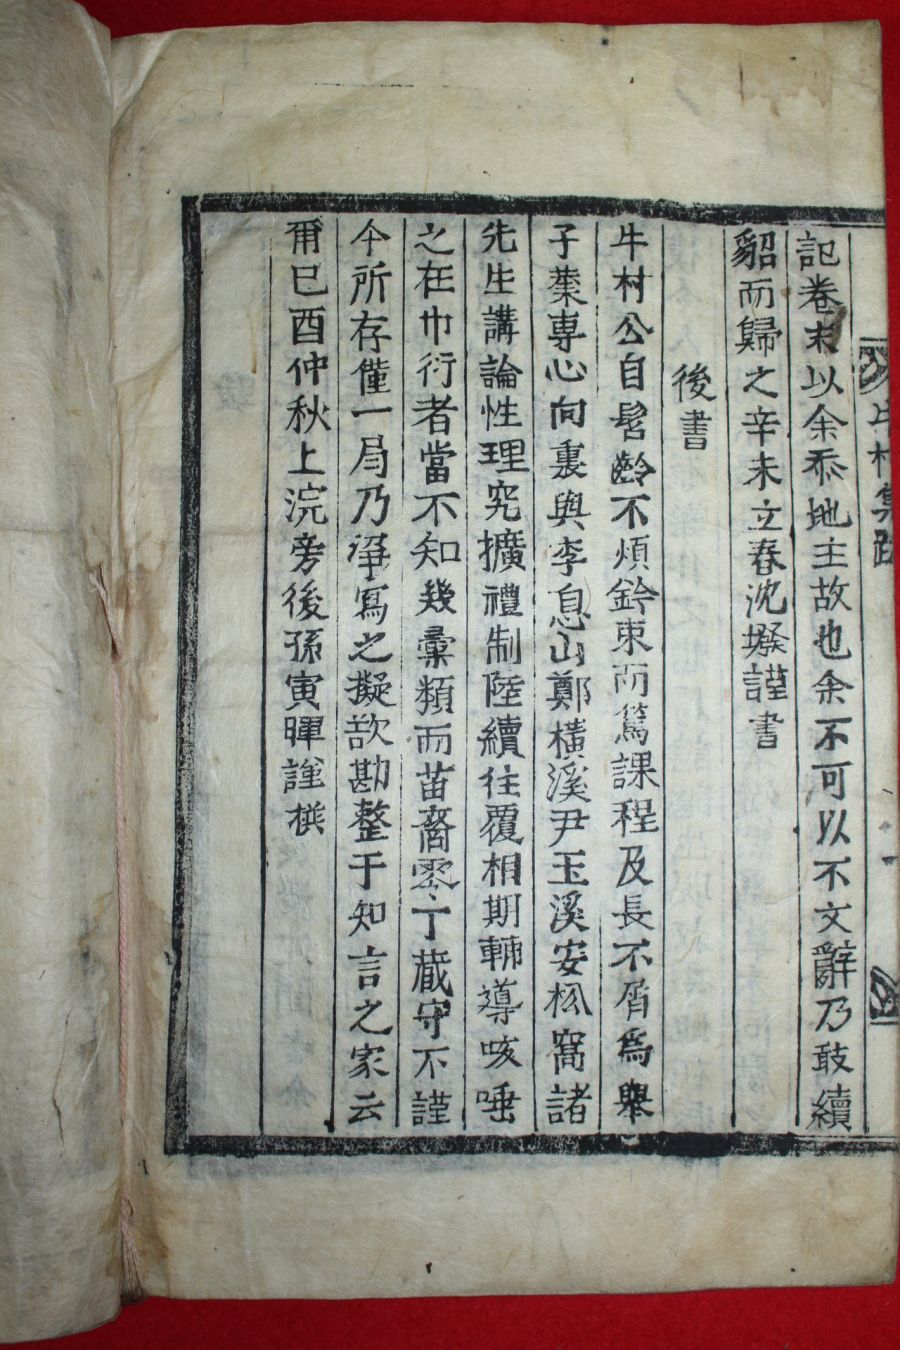 記卷末以余忝地主故也余不可以不文辭乃敢續
貂而歸之辛未立春沈墢謹書
後書
牛村公自髫齡不煩鈴束而篤課程及長不屑爲舉
子業專心向裏與李息山鄭橫溪尹玉溪安松窩諸
先生講論性理究擴禮制陸續往覆相期輔導咳唾
之在巾衍者當不知幾彙類而苗裔零丁藏守不謹
今所存僅一局乃淨寫之擬欲勘整于知言之家云
甭巳酉仲秋上浣旁後孫寅暉謹
牛村集跋